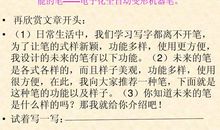 能的笔——电子化全自动变形机器笔。
• 再欣赏文章开头：
• （1）日常生活中，我们学习写字都离不开笔，
为了让笔的式样新颖，功能多样，使用更方便，
我设计的未来的笔有以下功能。（2）未来的笔
是各式各样的，而且样子美观，功能多样，使用
很方便，在此，我向大家推荐一种笔，下面就是
这种笔的功能以及样子。（3）你知道未来的笔
是什么样的吗？那我就给你介绍吧！
• 试着写一写：